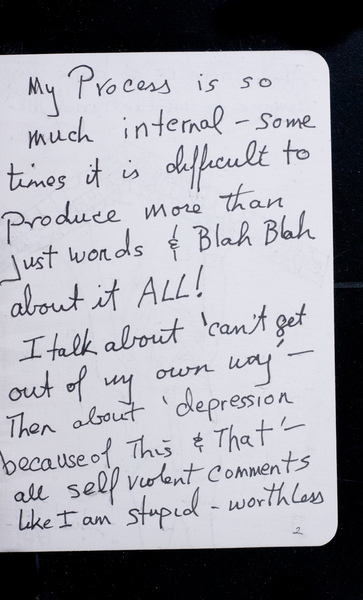 My Process is so
much internal - some
times it is difficult to
produce more than
Just words & Blah Blah
about it ALL!
I talk about 'can't get
out of my own way' —
Then about 'depression
because of This & That' —
all self violent comments
like I am stupid - worthless
2